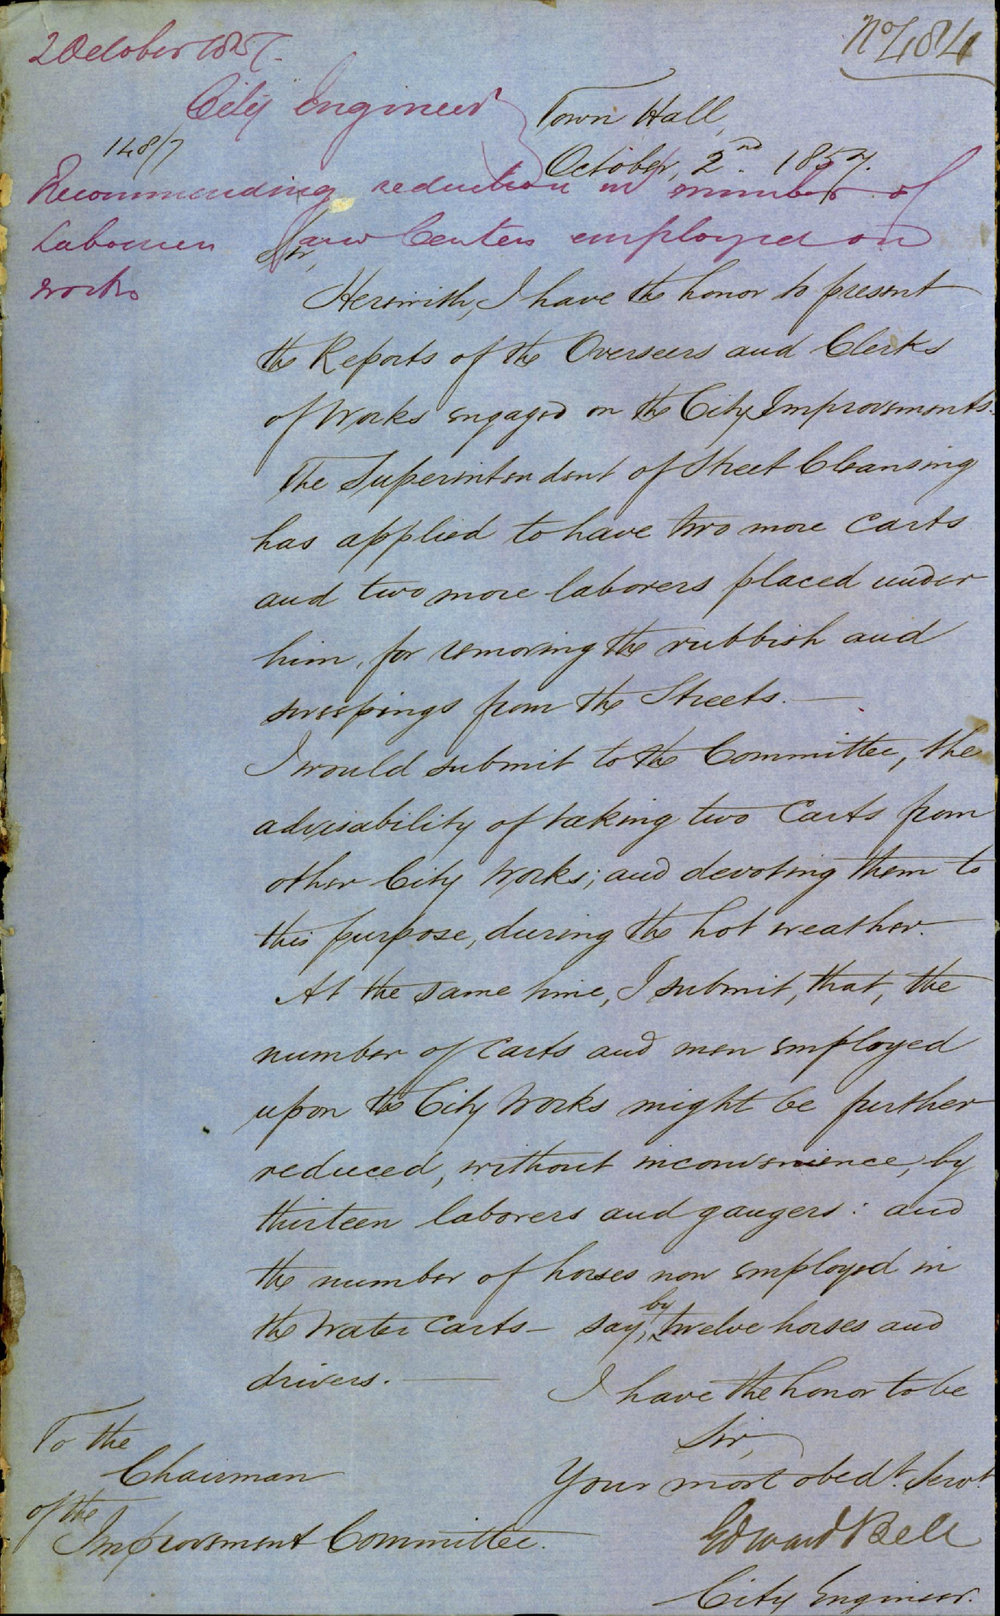 2 October 1857.
No 484
City Engineer
Town Hall,
148/7
October, 2nd. 1857.
Recommending reduction in number of
Labourers and Centers employed on
works
Sir,
Herewith, I have the honor to present
the Reports of the Overseers and Clerks
of Works engaged on the City Improvements.
The Superintendent of Street Cleansing
has applied to have two more carts
and two more laborers placed under
him, for removing the rubbish and
sweepings from the Streets. —
I would submit to the Committee, the
advisability of taking two Carts from
other City Works; and devoting them to
this purpose, during the hot weather.
At the same time, I submit, that, the
number of carts and men employed
upon the City Works might be further
reduced, without inconvenience, by
thirteen laborers and gaugers: and
the number of horses now employed in
the water carts — say, by twelve horses and
drivers. —
I have the honor to be
Sir,
Your most obedt. Servt.
Edward Bell
City Engineer.
To the
Chairman
of the
Improvement Committee.